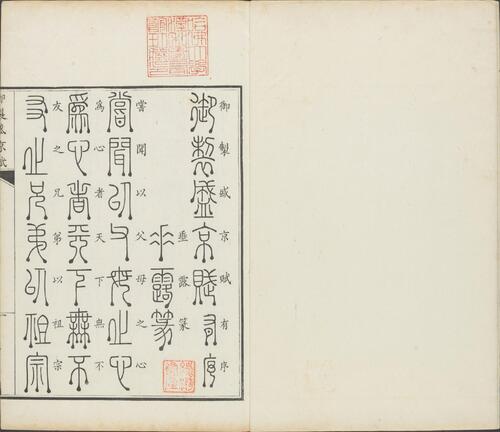 御製盛京賦有序
垂露篆
嘗聞以父母之心
為心者天下無不
友之兄弟以祖宗